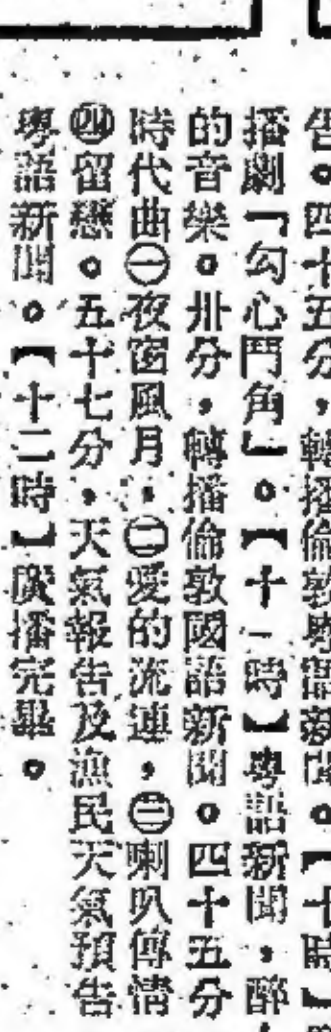 告。四十五分，轉播倫敦粵語新聞。【十時】
播劇「勾心鬥角」。【十一時】粵語新聞，醉
的音樂。卅分，轉播倫敦國語新聞。四十五分
時代曲㊀夜窗風月，㊁愛的流連，㊂喇叭傳情
㊃留戀。五十七分，天氣報告及漁民天氣預告
粵語新聞。【十二時】廣播完畢。